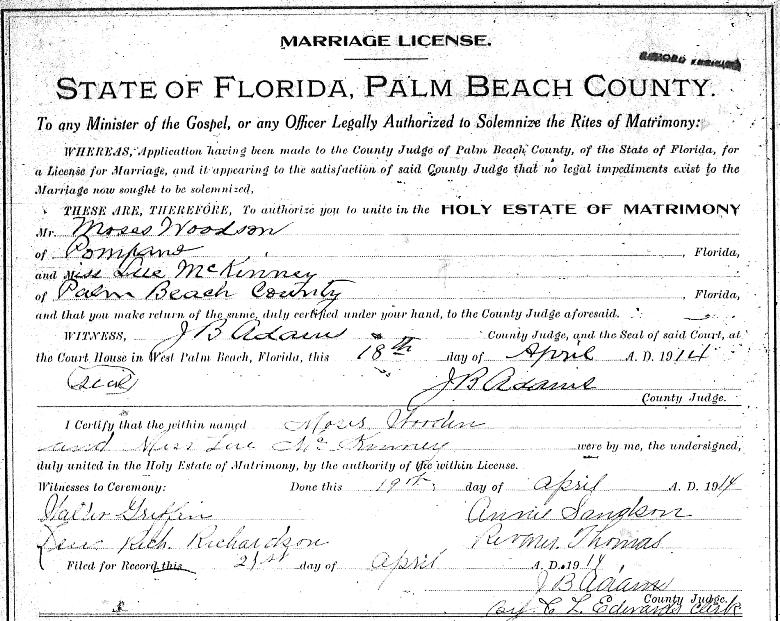 MARRIAGE LICENSE.
STATE OF FLORIDA, PALM BEACH COUNTY.
To any Minister of the Gospel, or any Officer Legally Authorized to Solemnize the Rites of Matrimony:
WHEREAS, Application having been made to the County Judge of Palm Beach County, of the State of Florida, for
a License for Marriage, and it appearing to the satisfaction of said County Judge that no legal impediments exist to the
Marriage now sought to be solemnized,
THESE ARE, THEREFORE, To authorize you to unite in the HOLY ESTATE OF MATRIMONY
Mr. Moses Woodson
of Pompano, Florida,
and Miss Lue McKinney
of Palm Beach County, Florida,
and that you make return of the same, duly certified under your hand, to the County Judge aforesaid.
WITNESS, J B Adams County Judge, and the Seal of said Court, at
the Court House in West Palm Beach, Florida, this 18th day of April A. D. 1914
Seal J B Adams
County Judge.
I Certify that the within named Moses Wooden
and Miss Lue McKinney were by me, the undersigned,
duly united in the Holy Estate of Matrimony, by the authority of the within License.
Witnesses to Ceremony: Done this 19th day of April A. D. 1914
Walter Griffin Annie
Rich. Richardson Thomas
Filed for Record this 21st day of April A. D. 1914
J B Adams
County Judge.
By C L Edwards Clerk